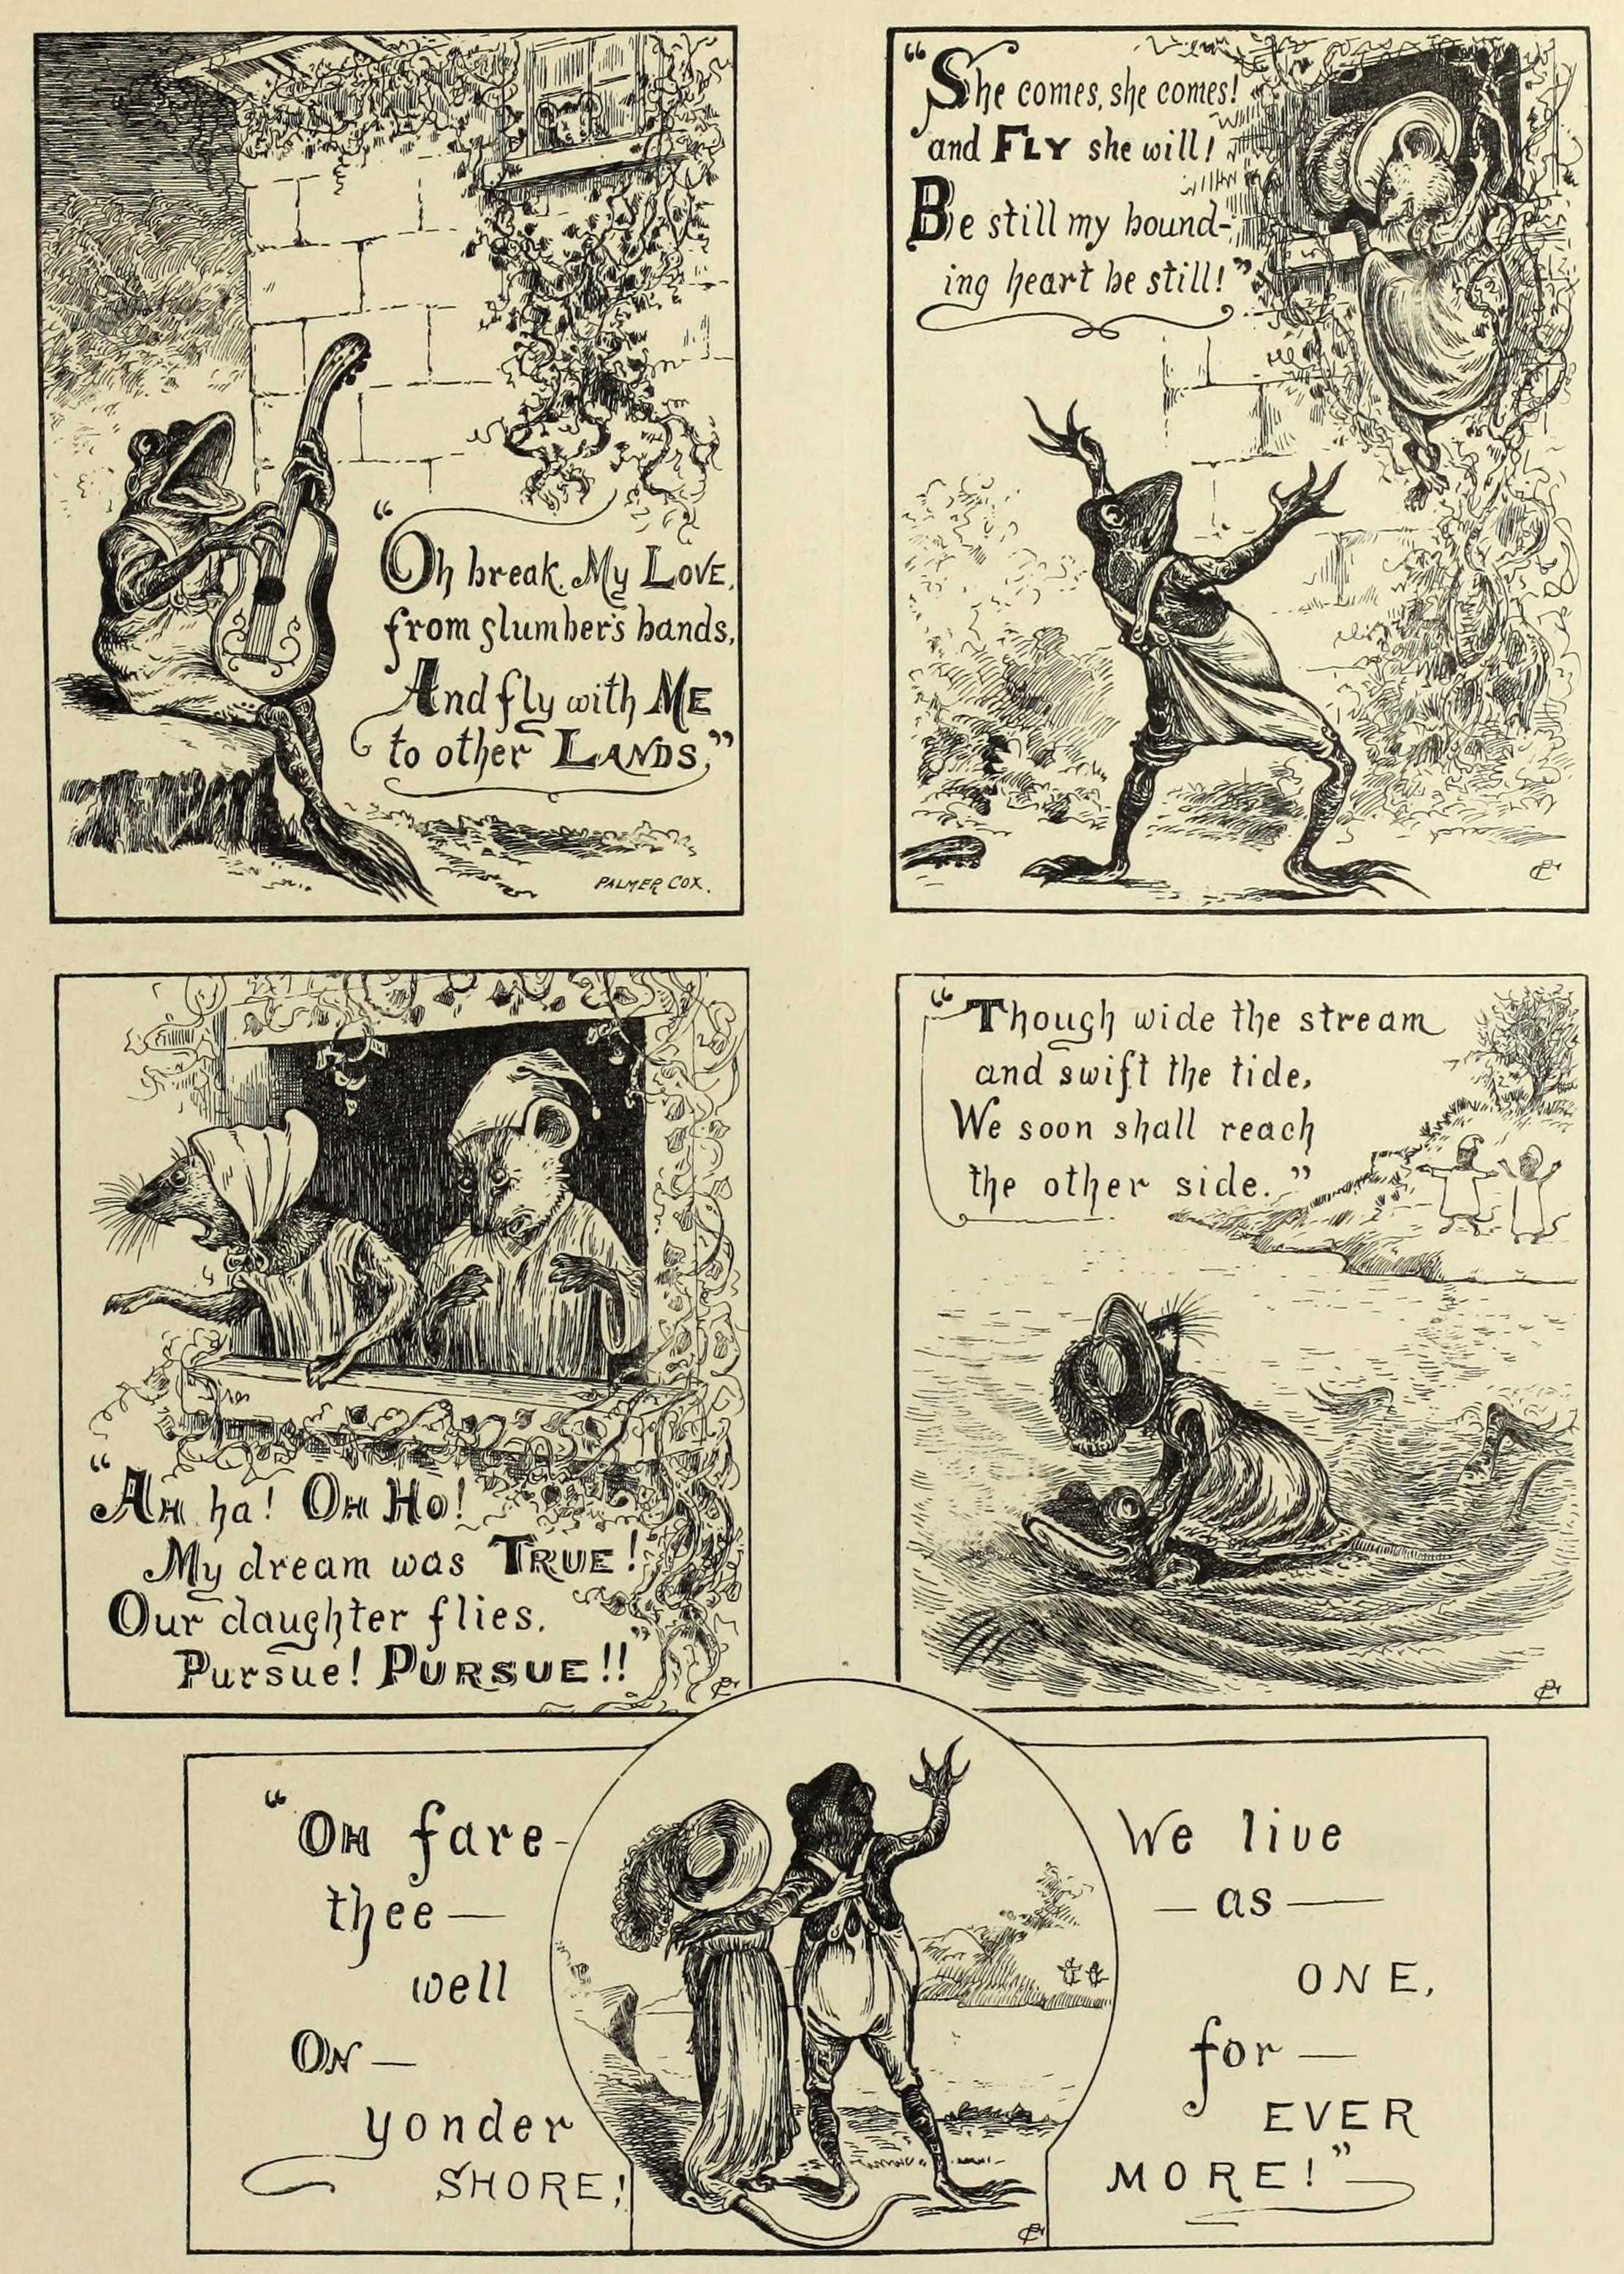 "Oh break, My Love,
from slumber's bands,
And fly with ME
to other LANDS,"
PALMER COX.
"She comes, she comes!
and FLY she will!
Be still my bound-
ing heart be still!"
PC
"AH ha! OH HO!
My dream was TRUE!
Our daughter flies.
Pursue! PURSUE!!"
PC
"Though wide the stream
and swift the tide,
We soon shall reach
the other side."
PC
"OH fare-
thee—
well
ON—
yonder
SHORE!
We live
—as—
ONE,
for—
EVER
MORE!"
PC